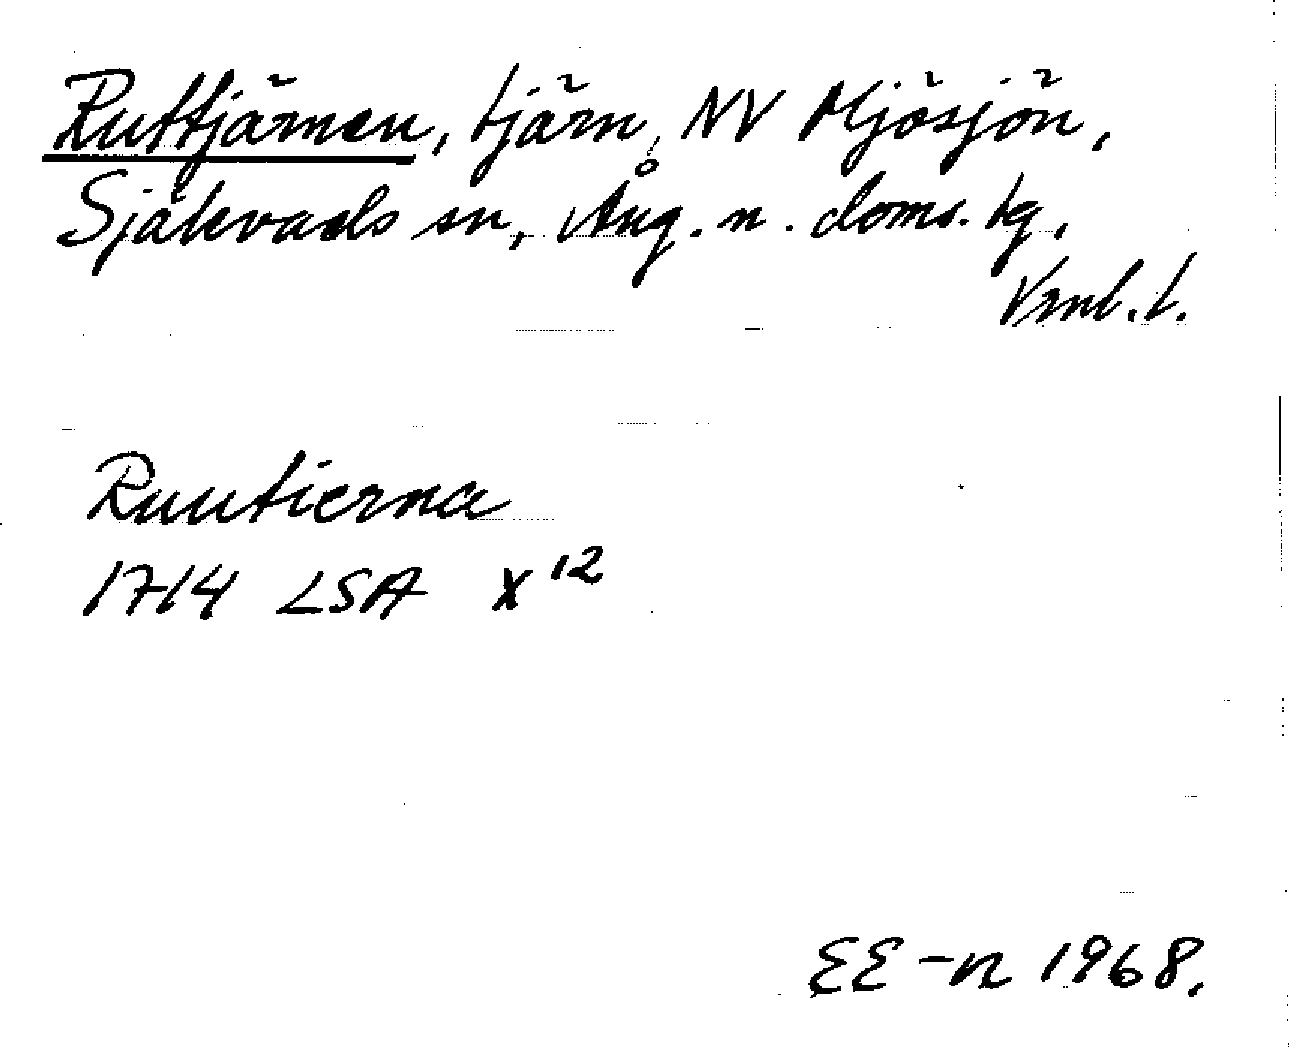 Ruttjärnen, tjärn, NV Mjösjön,
Själevads sn, Ång. n. doms. tg,
Vrnl. l.
Ruutierna
1714 LSA X 12
EE-n 1968.